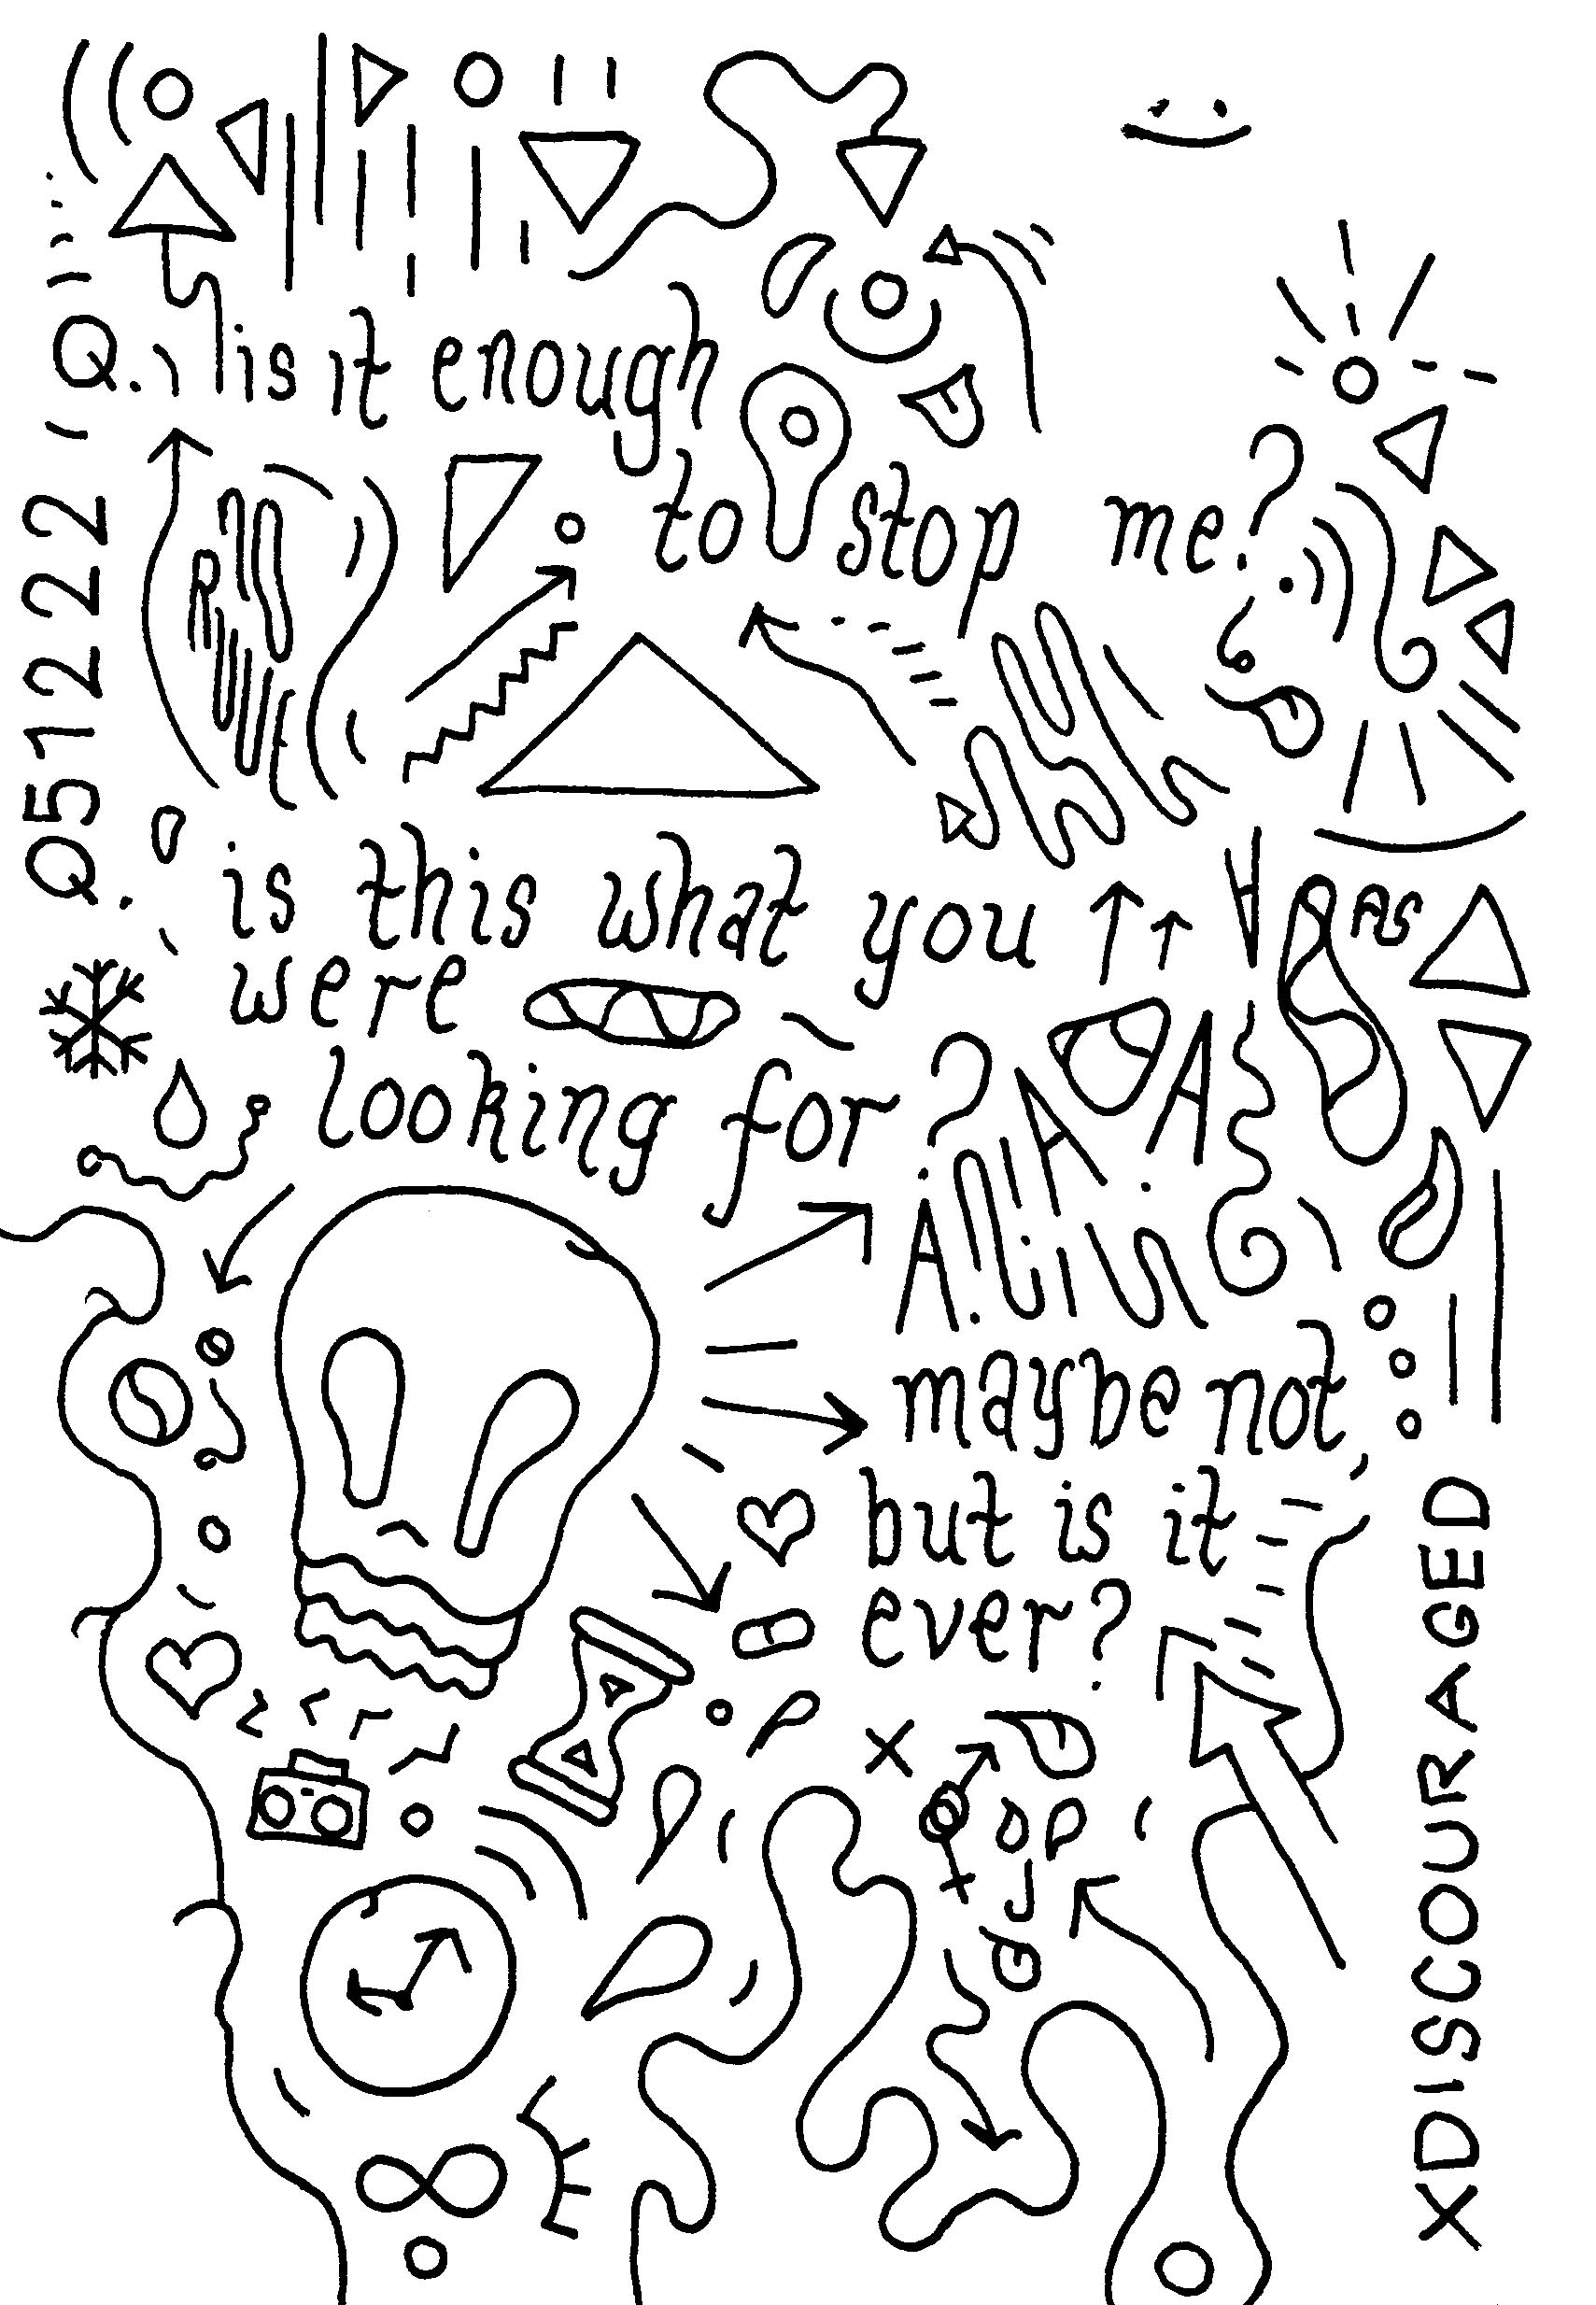 Q. is it enough
to stop me?
Q. is this what you
were
looking for?
A. A A
maybe not,
but is it
ever?
051222
XDISCOURAGED